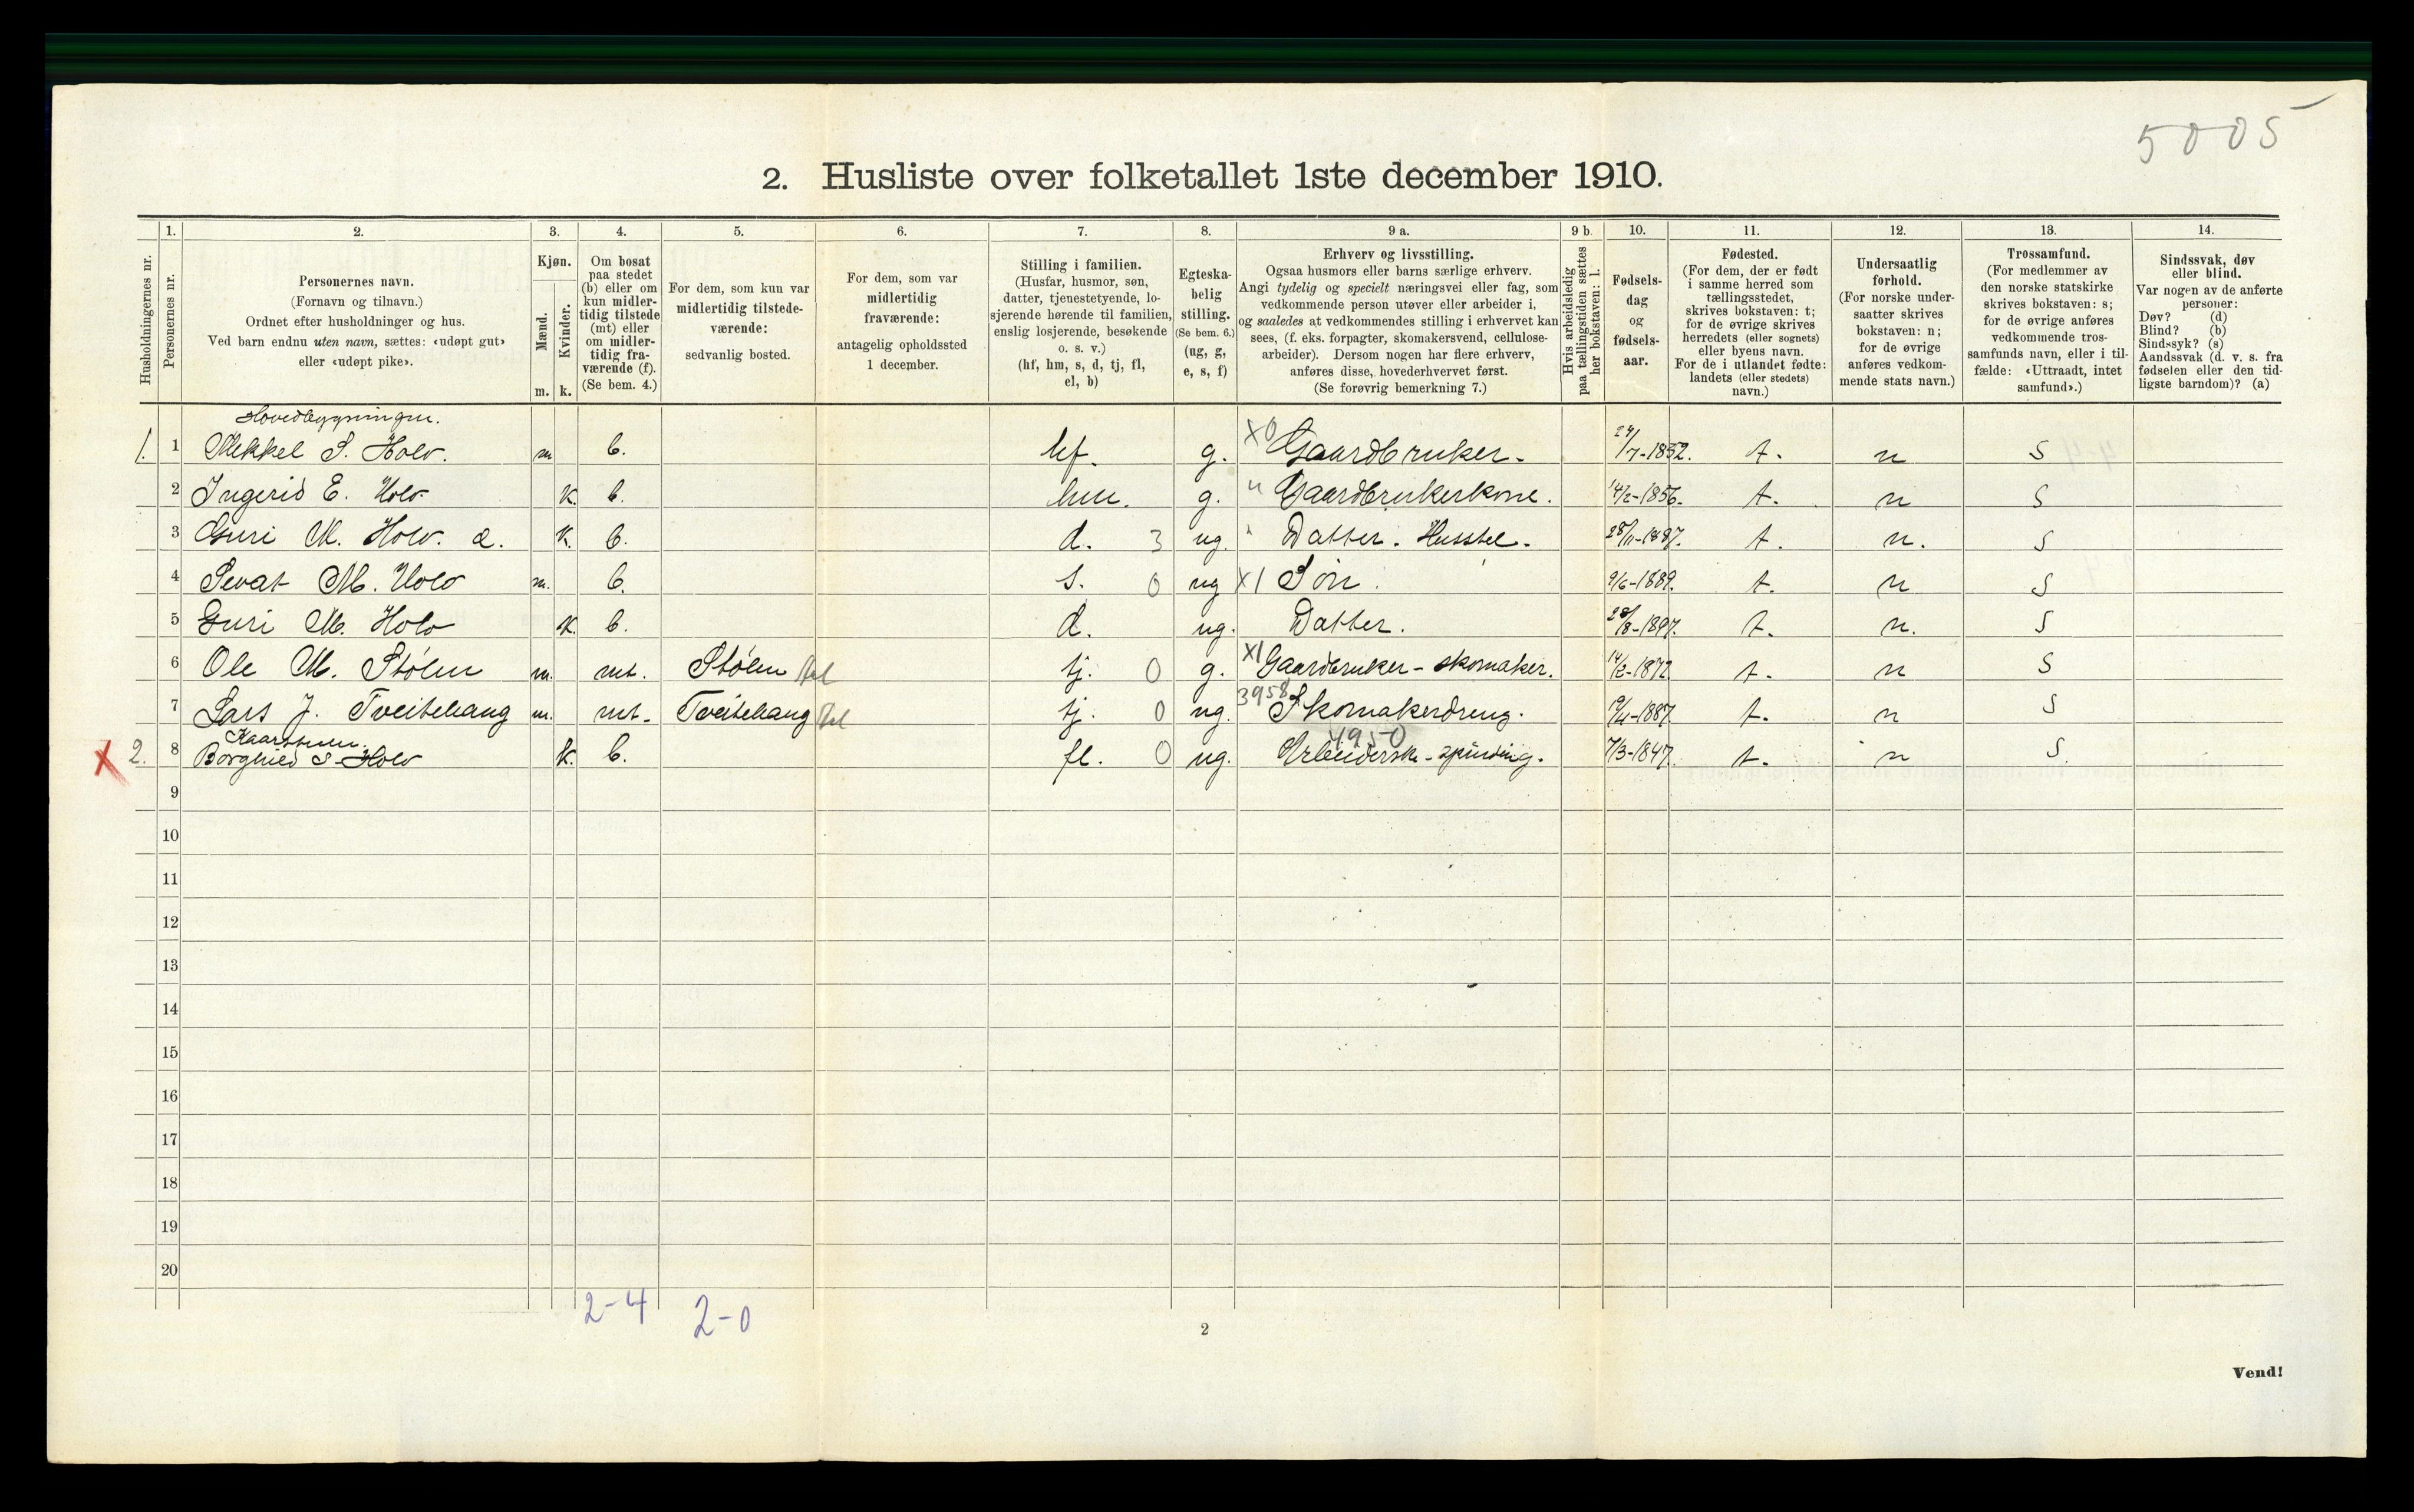 5005
2. Husliste over folketallet 1ste december 1910.
1. 2. 3. 4. 5. 6. 7. 8. 9 a. 9 b. 10. 11. 12. 13. 14.
Husholdningernes nr.
Personernes nr.
Personernes navn.
(Fornavn og tilnavn.)
Ordnet efter husholdninger og hus.
Ved barn endnu uten navn, sættes: «udøpt gut»
eller «udøpt pike».
Kjøn.
Mænd.
Kvinder.
m. k.
Om bosat
paa stedet
(b) eller om
kun midler-
tidig tilstede
(mt) eller
om midler-
tidig fra-
værende (f).
(Se bem. 4.)
For dem, som kun var
midlertidig tilstede-
værende:
sedvanlig bosted.
For dem, som var
midlertidig
fraværende:
antagelig opholdssted
1 december.
Stilling i familien.
(Husfar, husmor, søn,
datter, tjenestetyende, lo-
sjerende hørende til familien,
enslig losjerende, besøkende
o. s. v.)
(hf, hm, s, d, tj, fl,
el, b)
Egteska-
belig
stilling.
(Se bem. 6.)
(ug, g,
e, s, f)
Erhverv og livsstilling.
Ogsaa husmors eller barns særlige erhverv.
Angi tydelig og specielt næringsvei eller fag, som
vedkommende person utøver eller arbeider i,
og saaledes at vedkommendes stilling i erhvervet kan
sees, (f. eks. forpagter, skomakersvend, cellulose-
arbeider). Dersom nogen har flere erhverv,
anføres disse, hovederhvervet først.
(Se forøvrig bemerkning 7.)
Hvis arbeidsledig
paa tællingstiden sættes
her bokstaven: l.
Fødsels-
dag
og
fødsels-
aar.
Fødested.
(For dem, der er født
i samme herred som
tællingsstedet,
skrives bokstaven: t;
for de øvrige skrives
herredets (eller sognets)
eller byens navn.
For de i utlandet fødte:
landets (eller stedets)
navn.)
Undersaatlig
forhold.
(For norske under-
saatter skrives
bokstaven: n;
for de øvrige
anføres vedkom-
mende stats navn.)
Trossamfund.
(For medlemmer av
den norske statskirke
skrives bokstaven: s;
for de øvrige anføres
vedkommende tros-
samfunds navn, eller i til-
fælde: «Uttraadt, intet
samfund».)
Sindssvak, døv
eller blind.
Var nogen av de anførte
personer:
Døv? (d)
Blind? (b)
Sindssyk? (s)
Aandssvak (d. v. s. fra
fødselen eller den tid-
ligste barndom)? (a)
Hovedbygningen.
1. 1 Mekkel S. Holv. m b. hf. g. X0 Gaardbruker. 24/7-1852. t. n s
2 Ingerid E. Holv k. b. hm. g. " Gaardbrukerkone. 14/2-1856. t. n s
3 Guri M. Holv. d. k. b. d. 3 ug. " Datter. Husstel. 28/11-1887. t. n. s
4 Sevat M. Holv m. b. s. 0 ug X1 Søn. 9/6-1889. t. n s
5 Guri M. Holv k. b. d. ug. Datter. 28/8-1897. t. n. s
6 Ole M. Stølen m. mt. Stølen tj. 0 g. X1 Gaardbruker - skomaker. 14/2-1872 t. n s
7 Lars J. Tveitehaug m. mt. Tveitehaug tj. 0 ug. 3958 Skomakerdreng. 19/4-1887. t. n s
4950
X 2. 8 Borghild S. Holv k. b. fl. 0 ug. Arbeiderske - spinding. 7/3-1847. t. n s.
9
10
11
12
13
14
15
16
17
18
19
20
2-4 2-0
2
Vend!